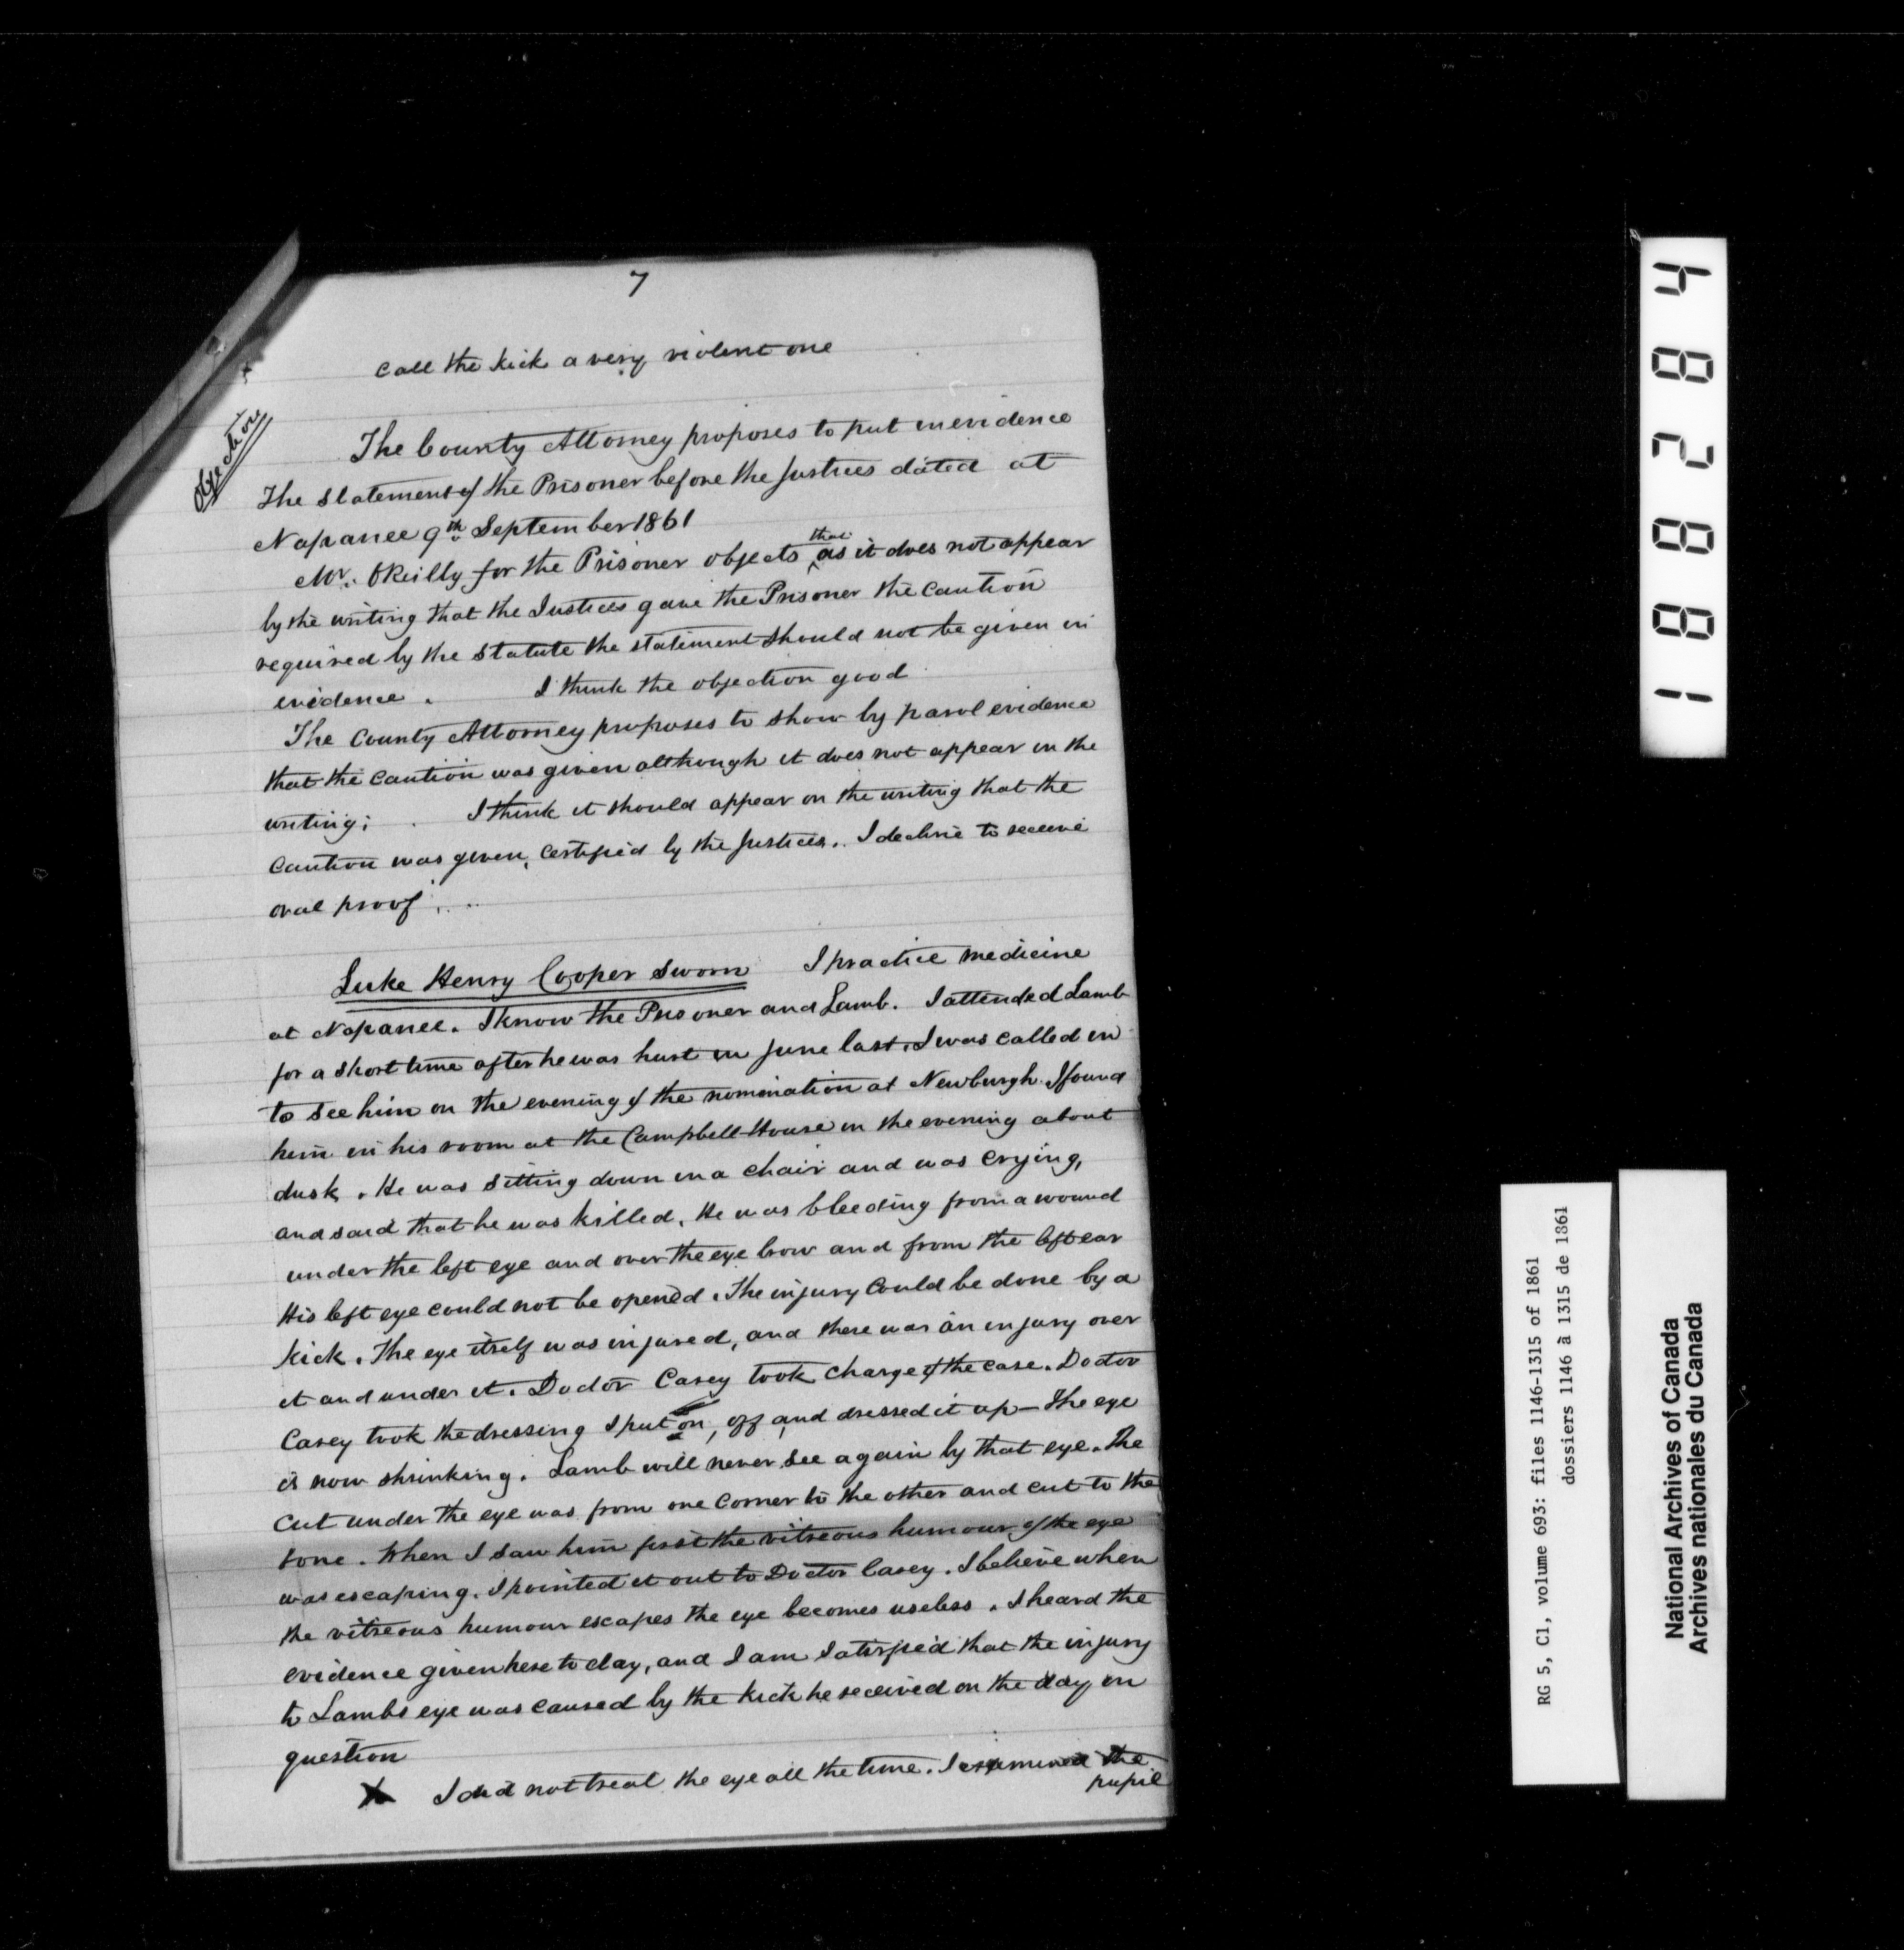 7
call the kick a very violent one
Objection
The County Attorney proposes to put in evidence
The statement of the Prisoner before the Justices dated at
Napanee 9th September 1861
Mr. OReilly for the Prisoner objects that as it does not appear
by the writing that the Justices gave the Prisoner the caution
required by the Statute the statement should not be given in
evidence. I think the objection good
The County Attorney proposes to show by parol evidence
that the caution was given although it does not appear in the
writing; I think it should appear on the writing that the
caution was given, certified by the Justices. I decline to receive
oral proof.
Luke Henry Cooper Sworn I practice medicine
at Napanee. I know the Prisoner and Lamb. I attended Lamb
for a short time after he was hurt in June last. I was called in
to see him on the evening of the nomination at Newburgh. I found
him in his room at the Campbell House in the evening about
dusk. He was sitting down in a chair and was crying,
and said that he was killed. He was bleeding from a wound
under the left eye and over the eye brow and from the left ear
His left eye could not be opened. The injury could be done by a
kick. The eye itself was injured, and there was an injury over
it and under it. Doctor Casey took charge of the case. Doctor
Casey took the dressing I put on, off, and dressed it up – The eye
is now shrinking. Lamb will never see again by that eye. The
cut under the eye was from one corner to the other and cut to the
bone. When I saw him first the vitreous humour of the eye
was escaping. I pointed it out to Doctor Casey. I believe when
the vitreous humour escapes the eye becomes useless. I heard the
evidence given here to day, and I am satisfied that the injury
to Lambs eye was caused by the kick he received on the day in
question
X I did not treat the eye all the time. I examined the
pupil
188284
RG 5, C1, volume 693: files 1146-1315 of 1861
dossiers 1146 à 1315 de 1861
National Archives of Canada
Archives nationales du Canada